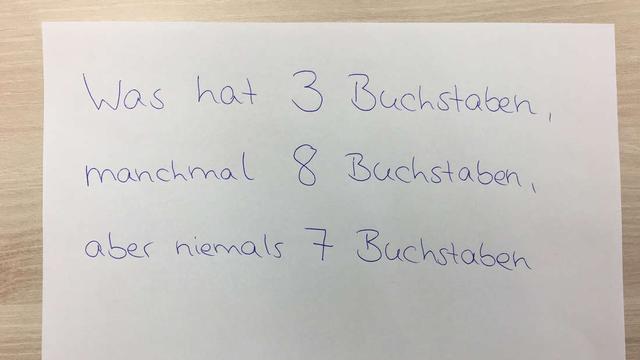 Was hat 3 Buchstaben,
manchmal 8 Buchstaben,
aber niemals 7 Buchstaben